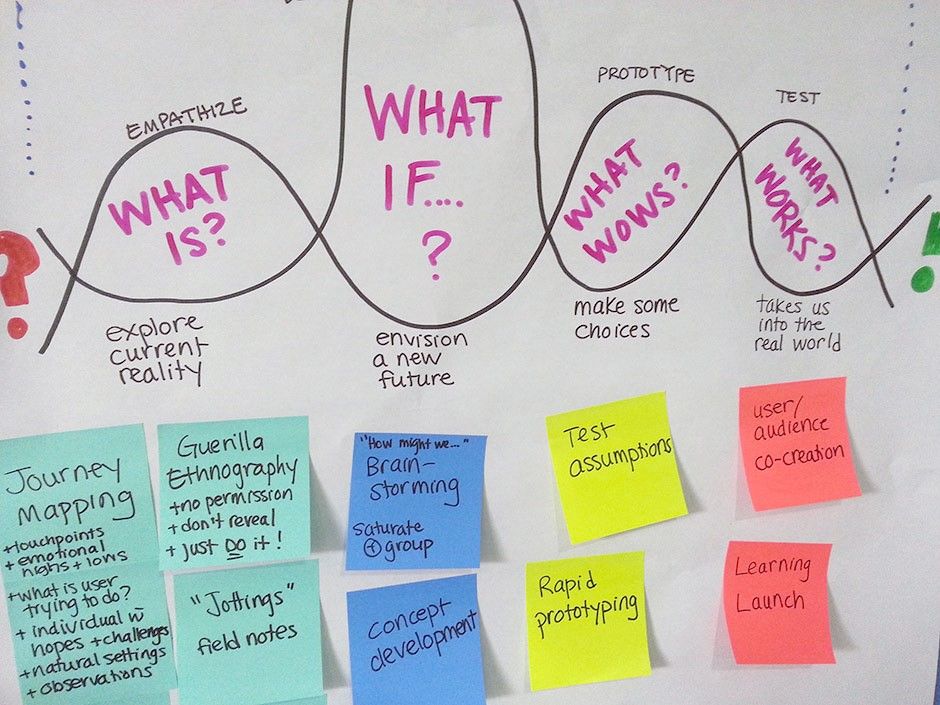 EMPATHIZE
WHAT
IS?
explore
current
reality
WHAT
IF....
?
envision
a new
future
PROTOTYPE
WHAT
WOWS?
make some
choices
TEST
WHAT
WORKS?
takes us
into the
real world
?
!
Journey
Mapping
+touchpoints
+ emotional
highs + lows
+what is user
trying to do?
+ individual w
hopes + challenges
+natural settings
+ observations
Guerilla
Ethnography
+no permission
+don't reveal
+ just DO it!
"Jottings"
field notes
"How might we..."
Brain-
storming
saturate
+ group
concept
development
Test
assumptions
Rapid
prototyping
user/
audience
co-creation
Learning
Launch